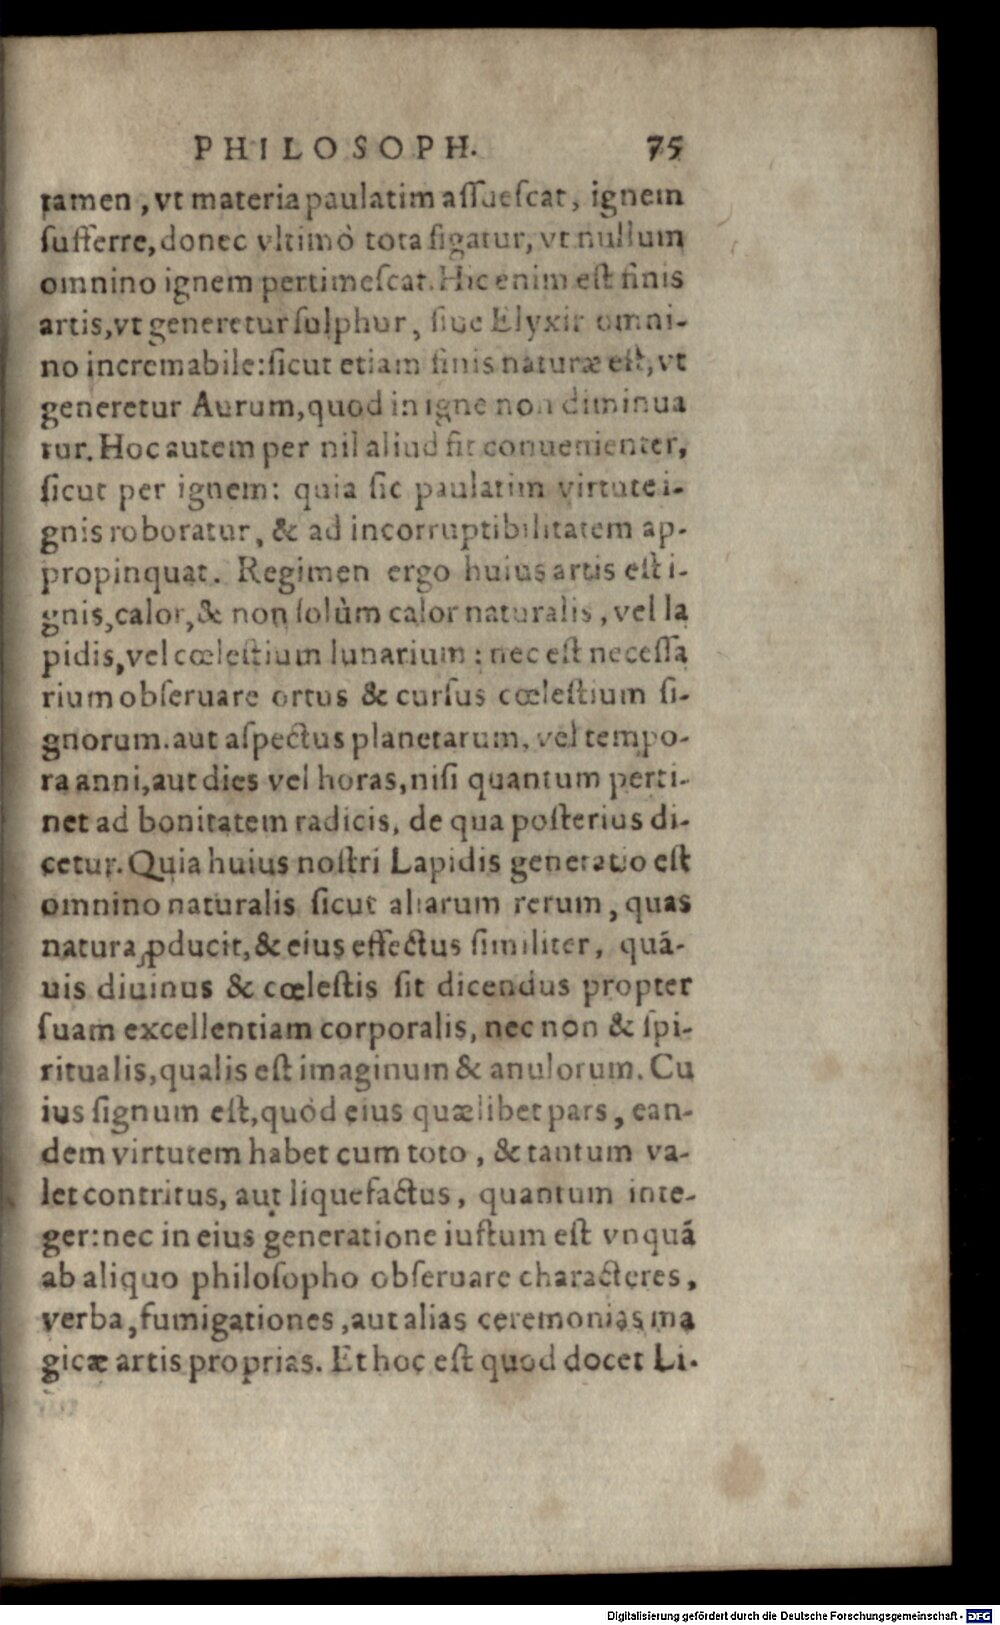 PHILOSOPH. 75
tamen, vt materia paulatim assuescat, ignem
sufferre, donec vltimò tota figatur, vt nullum
omnino ignem pertimescat. Hic enim est finis
artis, vt generetur sulphur, siue Elyxir omni-
no incremabile: sicut etiam finis naturæ est, vt
generetur Aurum, quod in igne non diminua
tur. Hoc autem per nil aliud fit conuenienter,
sicut per ignem: quia sic paulatim virtute i-
gnis roboratur, & ad incorruptibilitatem ap-
propinquat. Regimen ergo huius artis est i-
gnis, calor, & non solùm calor naturalis, vel la
pidis, vel cœlestium lunarium: nec est necessa
rium obseruare ortus & cursus cœlestium si-
gnorum. aut aspectus planetarum, vel tempo-
ra anni, aut dies vel horas, nisi quantum perti-
net ad bonitatem radicis, de qua posterius di-
cetur. Quia huius nostri Lapidis generatio est
omnino naturalis sicut aliarum rerum, quas
natura ꝓducit, & eius effectus similiter, quā-
uis diuinus & cœlestis sit dicendus propter
suam excellentiam corporalis, nec non & spi-
ritualis, qualis est imaginum & anulorum. Cu
ius signum est, quòd eius quælibet pars, ean-
dem virtutem habet cum toto, & tantum va-
let contritus, aut liquefactus, quantum inte-
ger: nec in eius generatione iustum est vnquā
ab aliquo philosopho obseruare characteres,
verba, fumigationes, aut alias ceremonias ma
gicæ artis proprias. Et hoc est quod docet Li-
Digitalisierung gefördert durch die Deutsche Forschungsgemeinschaft - DFG